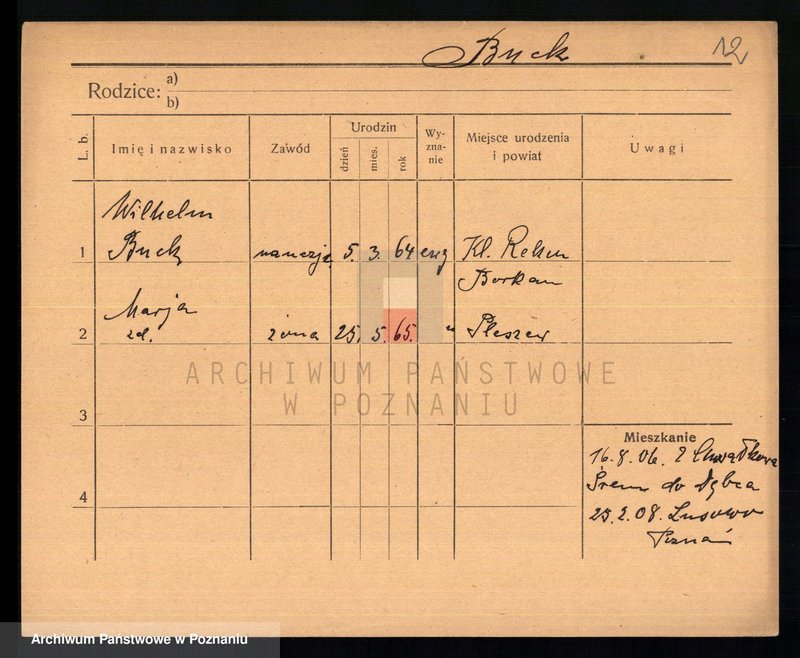 Buck 12
Rodzice: a)
b)
L. b. Imię i nazwisko Zawód Urodzin dzień mies. rok Wy-zna-nie Miejsce urodzenia i powiat Uwagi
Wilhelm
1 Buck 5. 3. 64 Kl.
Marja
2 żona 25. 5. 65. " Pleszew
ARCHIWUM PAŃSTWOWE
W POZNANIU
3
Mieszkanie
16.8.06. Z
4 Śrem do Dębca
25.2.08. Lusowo
Poznań
Archiwum Państwowe w Poznaniu